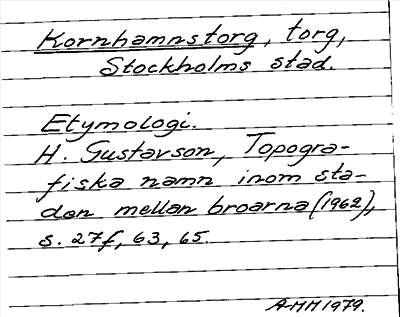 Kornhamnstorg, torg,
Stockholms stad.
Etymologi.
H. Gustavson, Topogra-
fiska namn inom sta-
den mellan broarna (1962),
s. 27f, 63, 65.
AMM 1979.